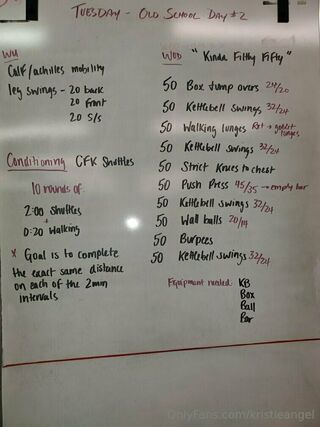 TUESDAY - OLD SCHOOL DAY #2
WU
Calf/achilles mobility
leg swings - 20 back
20 front
20 s/s
Conditioning CFK Shuttles
10 rounds of:
2:00 shuttles
+
0:20 walking
* Goal is to complete
the exact same distance
on each of the 2min
intervals
WOD "Kinda Filthy Fifty"
50 Box Jump overs 24/20
50 Kettlebell swings 32/24
50 Walking lunges Rx+ → goblet lunges
50 Kettlebell swings 32/24
50 Strict Knees to chest
50 Push Press 45/35 → empty bar
50 Kettlebell swings 32/24
50 Wall balls 20/14
50 Burpees
50 Kettlebell swings 32/24
Equipment needed: KB
Box
Ball
Bar
OnlyFans.com/kristieangel